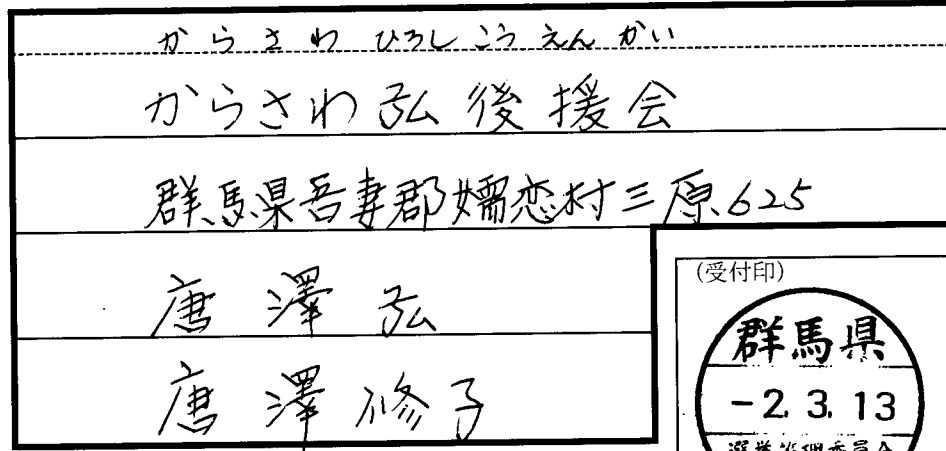 からさわ ひろし こうえんかい
からさわ弘後援会
群馬県吾妻郡嬬恋村三原625
唐澤弘
唐澤修子
(受付印)
群馬県
-2.3.13
選挙管理委員会